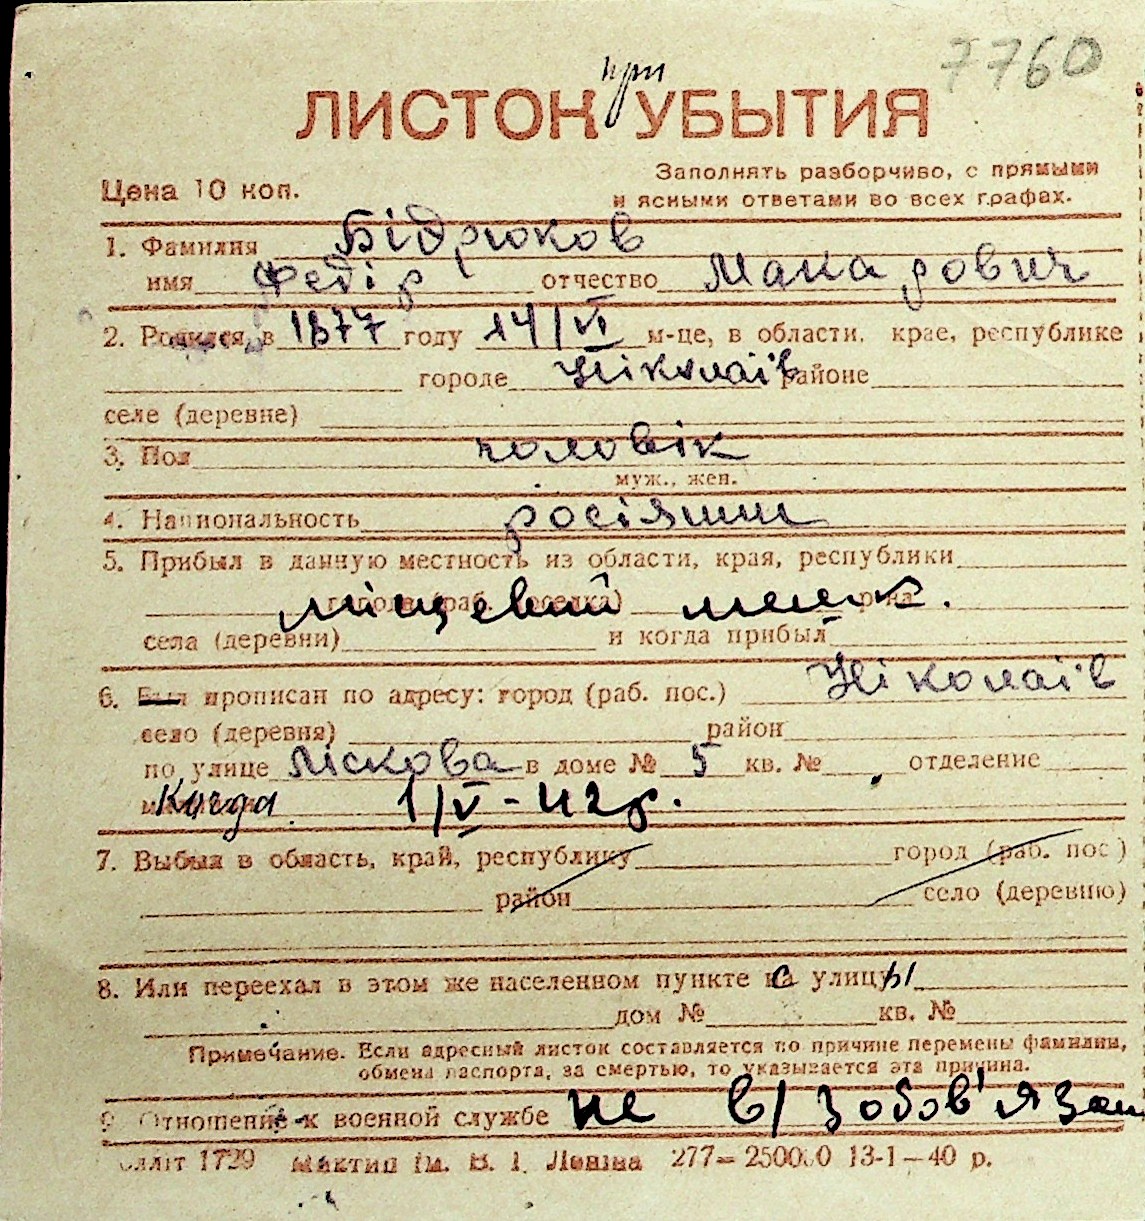 7760
при
ЛИСТОК УБЫТИЯ
Цена 10 коп.
Заполнять разборчиво, с прямыми
и ясными ответами во всех графах.
1. Фамилия Бідрюков
имя Федір отчество Макарович
2. Родился в 1877 году 14/VI м-це, в области, крае, республике
городе Ніколаїв районе
селе (деревне)
3. Пол чоловік
муж., жен.
4. Национальность росіянин
5. Прибыл в данную местность из области, края, республики
города (раб. поселка) місцевий р-на
села (деревни) и когда прибыл
6. Был прописан по адресу: город (раб. пос.) Ніколаїв
село (деревня) район
по улице Піскова в доме № 5 кв. № отделение
Когда 1/V-42р.
7. Выбыл в область, край, республику город (раб. пос.)
район село (деревню)
8. Или переехал в этом же населенном пункте с улицы
дом № кв. №
Примечание. Если адресный листок составляется по причине перемены фамилии,
обмена паспорта, за смертью, то указывается эта причина.
9 Отношение к военной службе не в/зобов'язан
1729 им. В. І. Леніна 277— 250000 13-1—40 р.